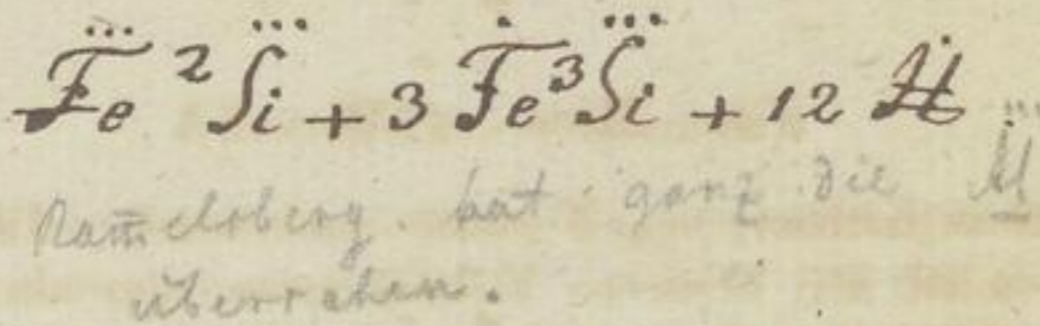 F̶e⃛ ²S⃛i + 3 Ḟe³S⃛i + 12 Ḣ̶
Ram̅elsberg. hat ganz die A⃛l̲
übersehen.